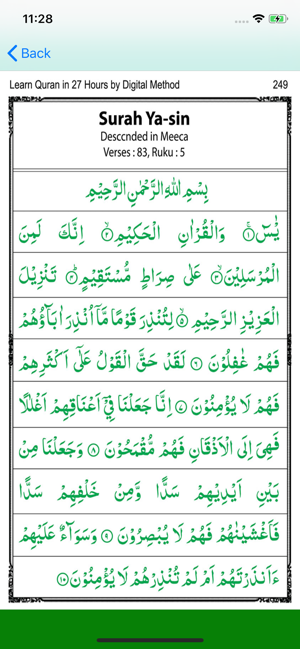 11:28
Back
Learn Quran in 27 Hours by Digital Method 249
Surah Ya-sin
Desccnded in Meeca
Verses : 83, Ruku : 5
بِسْمِ اللهِ الرَّحْمٰنِ الرَّحِيْمِ
يٰسٓ ۝١ وَالْقُرْاٰنِ الْحَكِيْمِ ۝٢ اِنَّكَ لَمِنَ
الْمُرْسَلِيْنَ ۝٣ عَلٰى صِرَاطٍ مُّسْتَقِيْمٍ ۝٤ تَنْزِيْلَ
الْعَزِيْزِ الرَّحِيْمِ ۝٥ لِتُنْذِرَ قَوْمًا مَّاۤ اُنْذِرَ اٰبَآؤُهُمْ
فَهُمْ غٰفِلُوْنَ ۝٦ لَقَدْ حَقَّ الْقَوْلُ عَلٰٓى اَكْثَرِهِمْ
فَهُمْ لَا يُؤْمِنُوْنَ ۝٧ اِنَّا جَعَلْنَا فِيْٓ اَعْنَاقِهِمْ اَغْلٰلًا
فَهِيَ اِلَى الْاَذْقَانِ فَهُمْ مُّقْمَحُوْنَ ۝٨ وَجَعَلْنَا مِنْۢ
بَيْنِ اَيْدِيْهِمْ سَدًّا وَّمِنْ خَلْفِهِمْ سَدًّا
فَاَغْشَيْنٰهُمْ فَهُمْ لَا يُبْصِرُوْنَ ۝٩ وَسَوَآءٌ عَلَيْهِمْ
ءَاَنْذَرْتَهُمْ اَمْ لَمْ تُنْذِرْهُمْ لَا يُؤْمِنُوْنَ ۝١٠